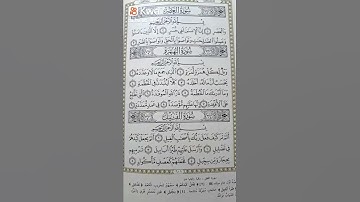 سُورَةُ العَصْرِ
بِسْمِ اللَّهِ الرَّحْمَٰنِ الرَّحِيمِ
وَالْعَصْرِ ① إِنَّ الْإِنسَانَ لَفِي خُسْرٍ ② إِلَّا الَّذِينَ ءَامَنُوا
وَعَمِلُوا الصَّالِحَاتِ وَتَوَاصَوْا بِالْحَقِّ وَتَوَاصَوْا بِالصَّبْرِ ③
سُورَةُ الهُمَزَةِ
بِسْمِ اللَّهِ الرَّحْمَٰنِ الرَّحِيمِ
وَيْلٌ لِّكُلِّ هُمَزَةٍ لُّمَزَةٍ ① الَّذِي جَمَعَ مَالًا وَعَدَّدَهُ ②
يَحْسَبُ أَنَّ مَالَهُ أَخْلَدَهُ ③ كَلَّا لَيُنبَذَنَّ فِي الْحُطَمَةِ ④
وَمَا أَدْرَاكَ مَا الْحُطَمَةُ ⑤ نَارُ اللَّهِ الْمُوقَدَةُ ⑥ الَّتِي تَطَّلِعُ
عَلَى الْأَفْئِدَةِ ⑦ إِنَّهَا عَلَيْهِم مُّؤْصَدَةٌ ⑧ فِي عَمَدٍ مُّمَدَّدَةٍ ⑨
سُورَةُ الفِيلِ
بِسْمِ اللَّهِ الرَّحْمَٰنِ الرَّحِيمِ
أَلَمْ تَرَ كَيْفَ فَعَلَ رَبُّكَ بِأَصْحَابِ الْفِيلِ ① أَلَمْ يَجْعَلْ كَيْدَهُمْ
فِي تَضْلِيلٍ ② وَأَرْسَلَ عَلَيْهِمْ طَيْرًا أَبَابِيلَ ③ تَرْمِيهِم
بِحِجَارَةٍ مِّن سِجِّيلٍ ④ فَجَعَلَهُمْ كَعَصْفٍ مَّأْكُولٍ ⑤